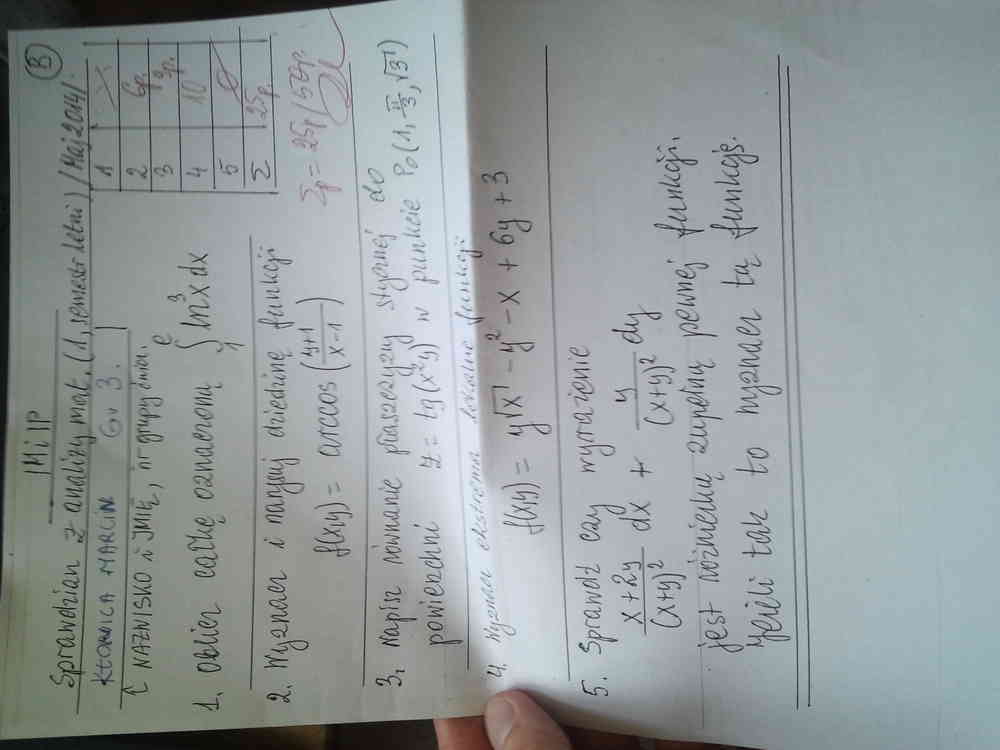 IMiIP
B
Sprawdzian z analizy mat. (1, semestr letni) /Maj 2014/
KŁOWNICA MARCIN Gr 3.
↑ NAZWISKO i IMIĘ, nr grupy ćwicz.
1
2 6p.
3 9p.
4 10
5 0
Σ 25p.
Σp = 25p/50p.
1. Oblicz całkę oznaczoną ∫₁ᵉ ln³x dx
2. Wyznacz i narysuj dziedzinę funkcji
f(x,y) = arccos ((y+1)/(x-1))
3. Napisz równanie płaszczyzny stycznej do
powierzchni z = tg(x²y) w punkcie P₀(1, π/3, √3)
4. Wyznacz ekstrema lokalne funkcji
f(x,y) = y√x - y² - x + 6y + 3
5. Sprawdź czy wyrażenie
(x+2y)/(x+y)² dx + y/(x+y)² dy
jest różniczką zupełną pewnej funkcji.
Jeżeli tak to wyznacz tą funkcję.